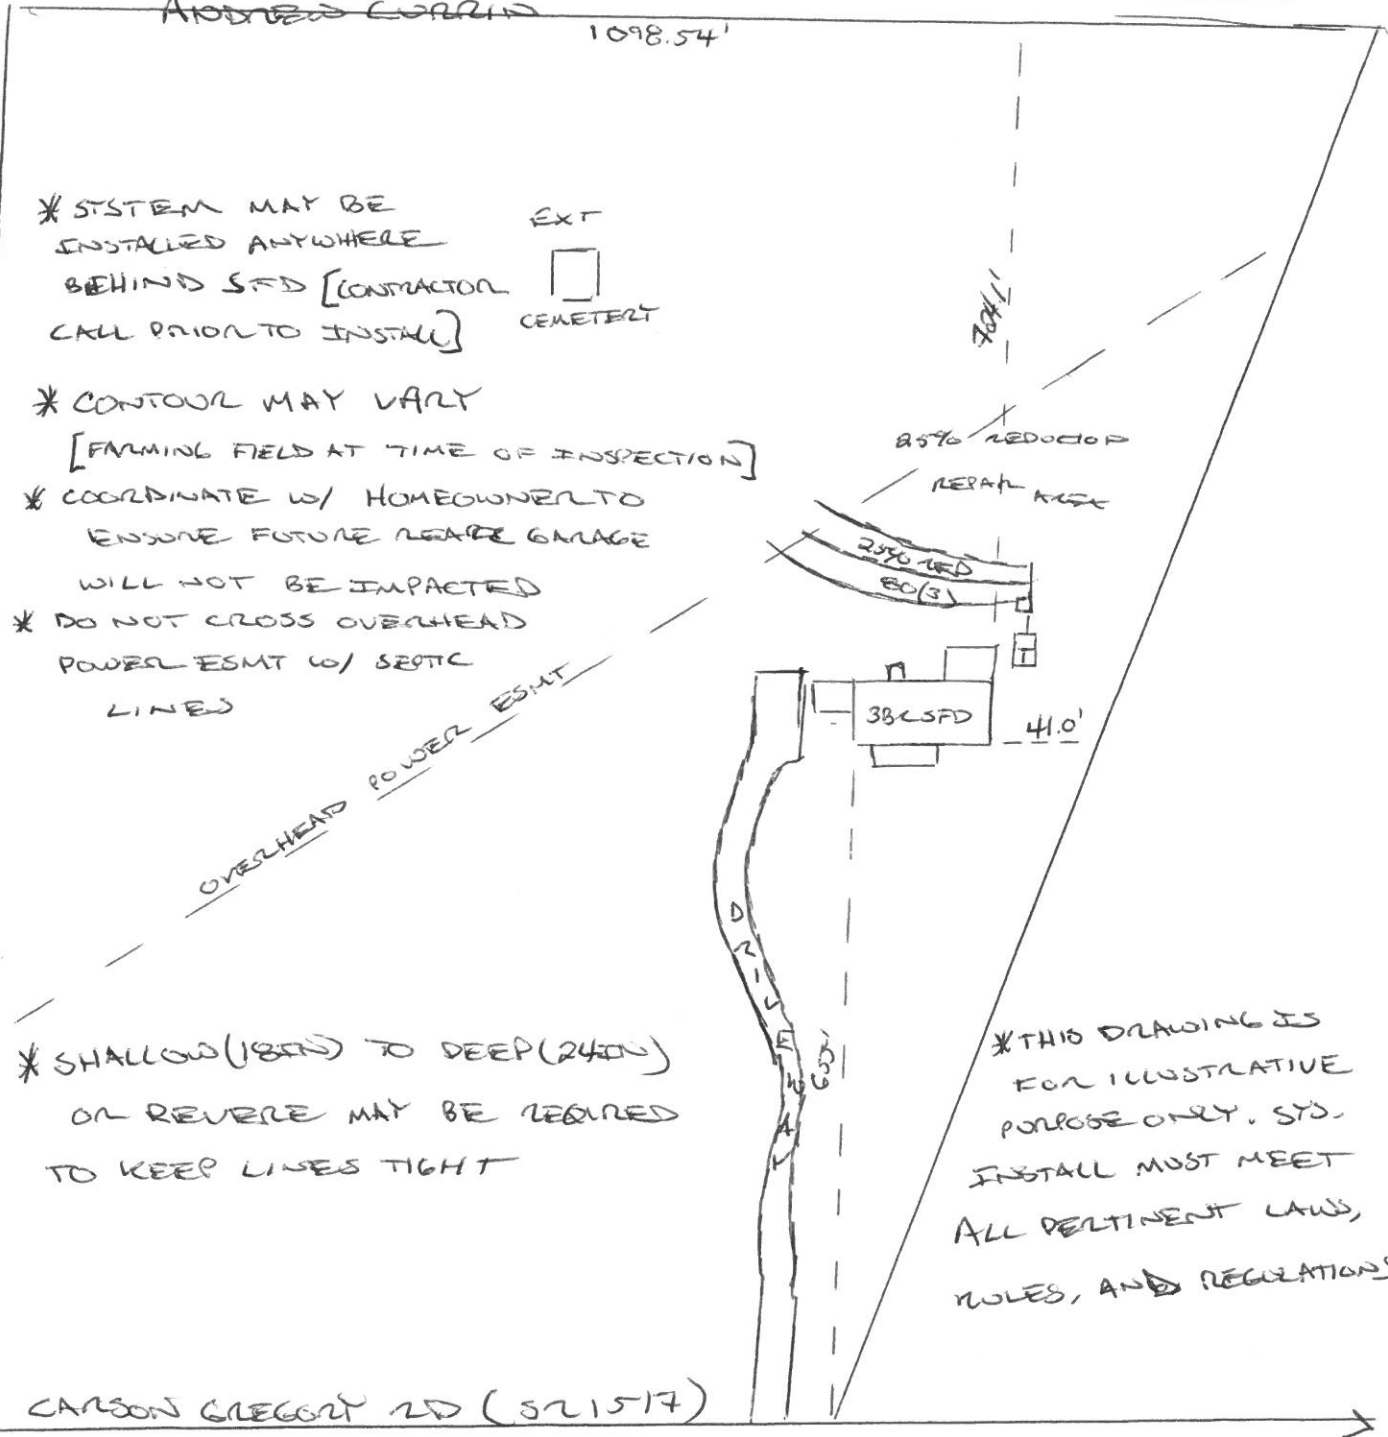 ANDREW CURRIN
1098.54'
* SYSTEM MAY BE
INSTALLED ANYWHERE
BEHIND SFD [CONTRACTOR
CALL PRIOR TO INSTALL]
EXT
CEMETERY
704.1'
* CONTOUR MAY VARY
[FARMING FIELD AT TIME OF INSPECTION]
* COORDINATE W/ HOMEOWNER TO
ENSURE FUTURE GARAGE
WILL NOT BE IMPACTED
* DO NOT CROSS OVERHEAD
POWER ESMT W/ SEPTIC
LINES
25% REDUCTION
REPAIR AREA
25% RED
80(3)
T
3BRSFD
41.0'
OVERHEAD POWER ESMT
DRIVEWAY
* SHALLOW (18IN) TO DEEP (24IN)
OR REVERE MAY BE REQUIRED
TO KEEP LINES TIGHT
* THIS DRAWING IS
FOR ILLUSTRATIVE
PURPOSE ONLY. SYS.
INSTALL MUST MEET
ALL PERTINENT LAWS,
RULES, AND REGULATIONS
CARSON GREGORY RD (SR1517)